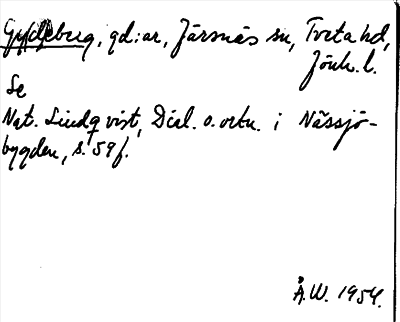 Gyldeberg, gd:ar, Järsnäs sn, Tveta hd,
Jönk. l.
Se
Nat. Lindqvist, Dial. o. ortn. i Nässjö-
bygden, s. 59 f.
Å.W. 1954.